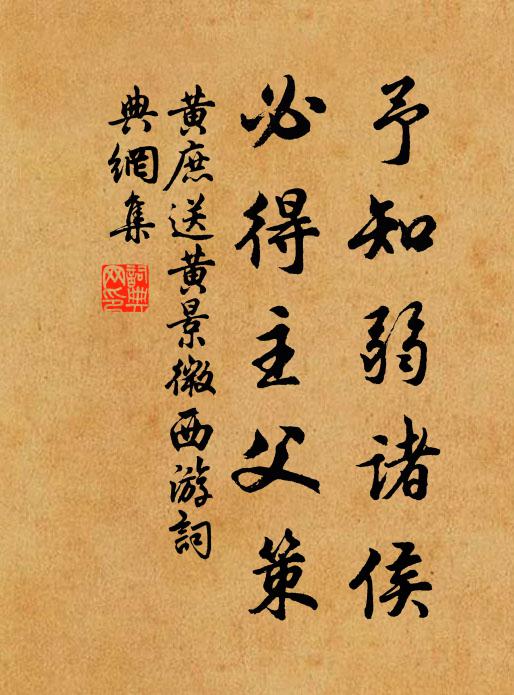 予知弱诸侯
必得主父策
黄庶送黄景微西游詞
典網集
詞典
网印